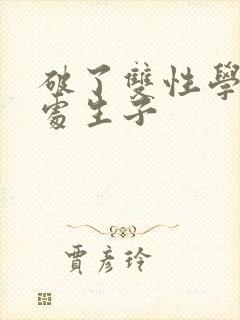 破了雙性學
處生子
賈彥玲